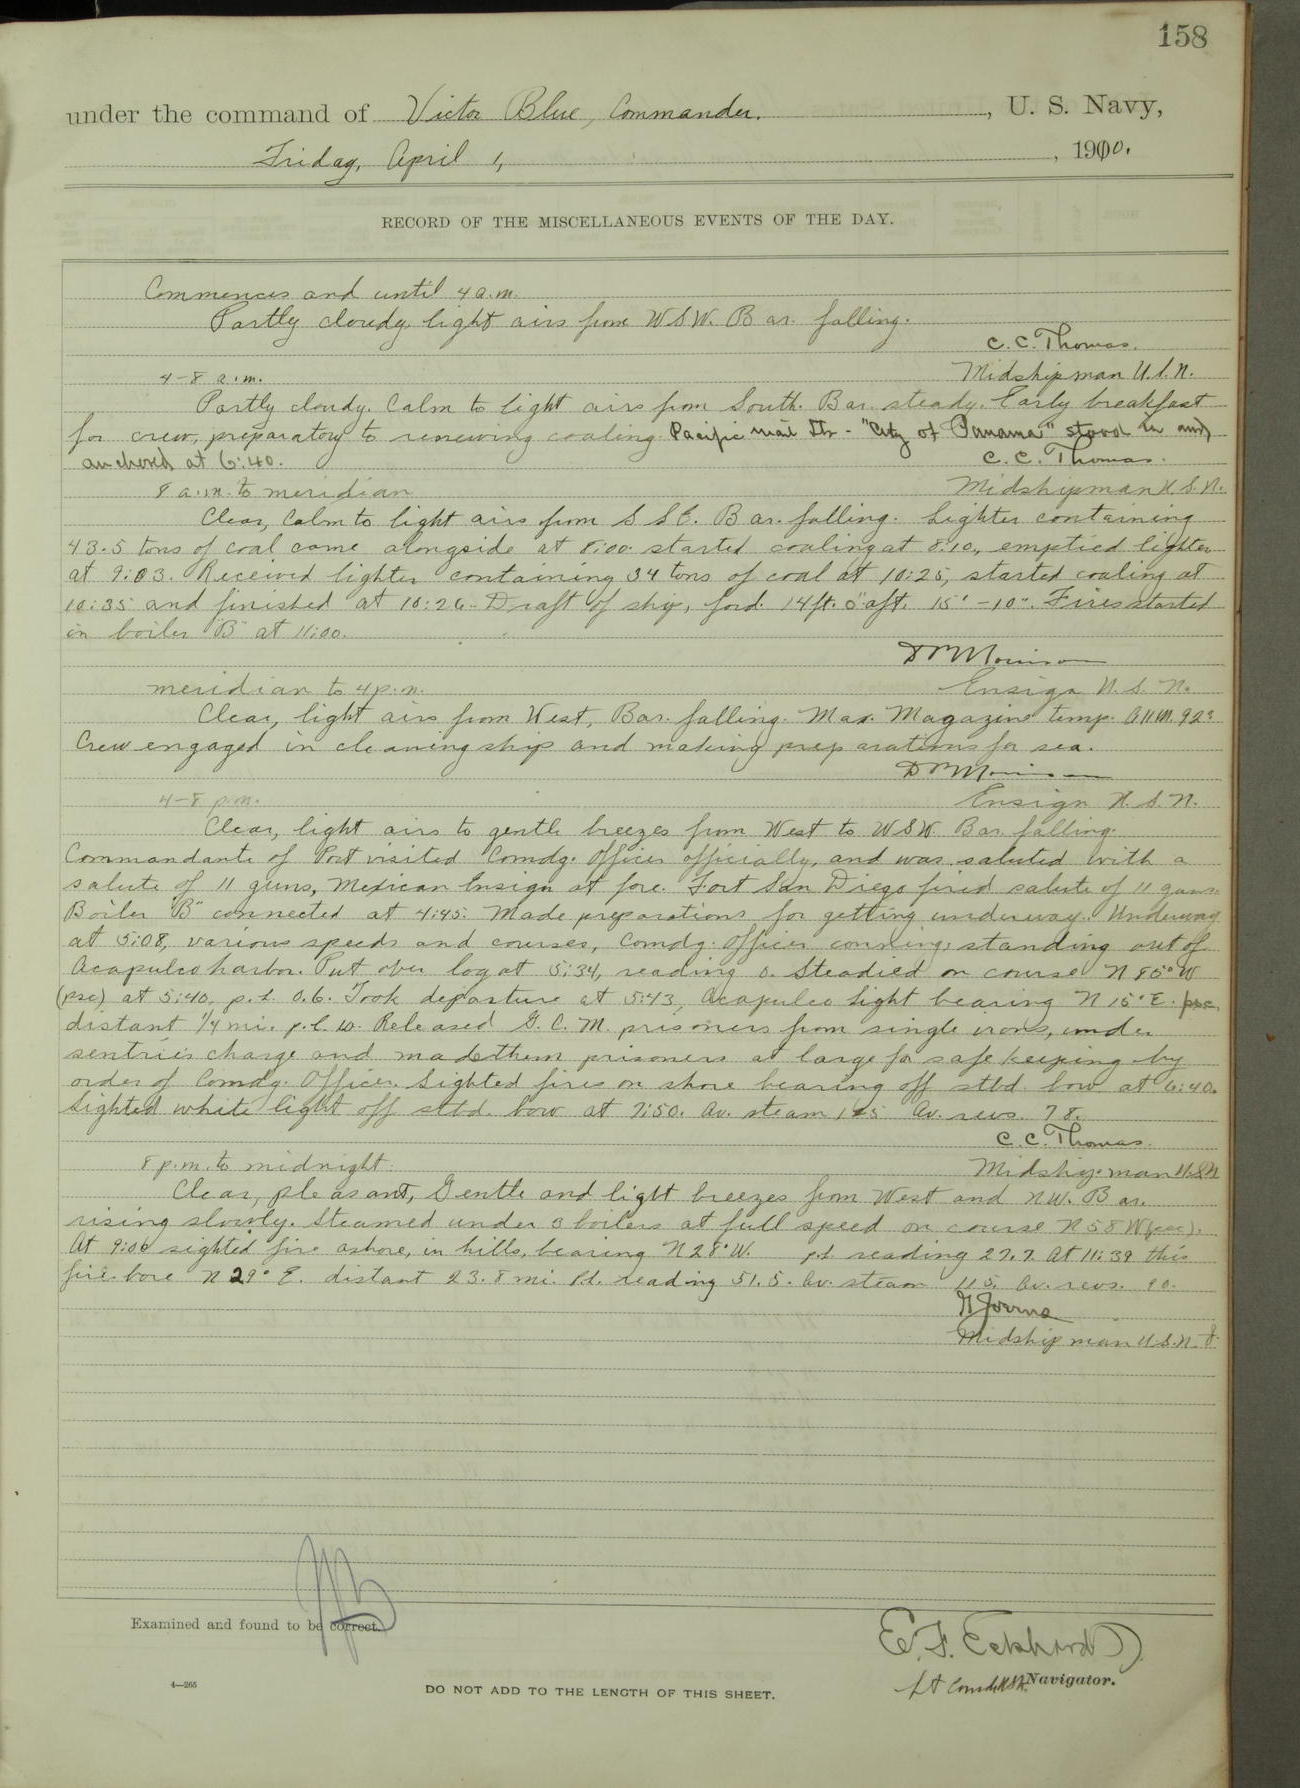 158
under the command of Victor Blue, Commander, U. S. Navy,
Friday, April 1, 1910.
RECORD OF THE MISCELLANEOUS EVENTS OF THE DAY.
Commences and until 4 a.m.
Partly cloudy, light airs from WSW. Bar. falling.
C. C. Thomas.
Midshipman U.S.N.
4-8 a.m.
Partly cloudy. Calm to light airs from South. Bar. steady. Early breakfast
for crew, preparatory to renewing coaling. Pacific Mail Str - "City of Panama" stood in and
anchored at 6:40.
C. C. Thomas.
Midshipman U.S.N.
8 a.m. to meridian
Clear, Calm to light airs from S S E. Bar. falling. Lighter containing
43.5 tons of coal came alongside at 8:00. started coaling at 8:10, emptied lighter
at 9:03. Received lighter containing 34 tons of coal at 10:25, started coaling at
10:35 and finished at 10:26. Draft of ship, ford. 14 ft. 0" aft. 15' -10". Fires started
in boiler "B" at 11:00.
Ensign U.S.N.
meridian to 4 p.m.
Clear, light airs from West, Bar. falling. Max. Magazine temp. 92°
Crew engaged in cleaning ship and making preparations for sea.
Ensign U.S.N.
4-8 p.m.
Clear, light airs to gentle breezes from West to WSW. Bar. falling.
Commandante of Port visited Comdg. Officer officially, and was saluted with a
salute of 11 guns, Mexican Ensign at fore. Fort San Diego fired salute of 11 guns.
Boiler "B" connected at 4:45. Made preparations for getting underway. Underway
at 5:08, various speeds and courses, Comdg. Officer conning, standing out of
Acapulco harbor. Put over log at 5:34, reading 0. Steadied on course N 85° W
(psc) at 5:40, p.l. 0.6. Took departure at 5:43, Acapulco Light bearing N 15° E. psc,
distant 1/4 mi. p.l. Released G. C. M. prisoners from single irons, under
sentries charge and made them prisoners at large for safe keeping by
order of Comdg. Officer. Sighted fires on shore bearing off stbd. bow at 6:40.
Sighted white light off stbd. bow at 7:50. Av. steam Av. revs. 78.
C. C. Thomas.
Midshipman U.S.N
8 p.m. to midnight.
Clear, pleasant, Gentle and light breezes from West and NW. Bar.
rising slowly. Steamed under 3 boilers at full speed on course N 58 W (psc).
At 9:06 sighted fire ashore, in hills, bearing N 28° W. p.l. reading 27.7. At 11:39 this
fire bore N 29° E. distant 23.8 mi. P.l. reading 51.5. Av. steam 115. Av. revs. 90.
Midshipman U.S.N.
Examined and found to be correct.
E. F. Eckhardt
Lt Comdr USN. Navigator.
4—265
DO NOT ADD TO THE LENGTH OF THIS SHEET.